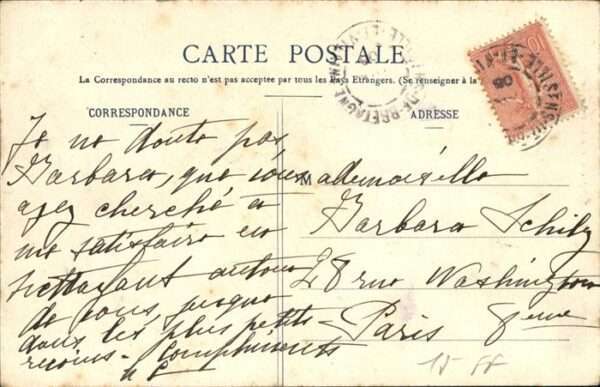 CARTE POSTALE
La Correspondance au recto n'est pas acceptée par tous les Pays Etrangers. (Se renseigner à la
CORRESPONDANCE
Je ne doute pas
Barbara, que vous
ayez cherché à
me satisfaire en
nettoyant autour
de vous jusque
dans les plus petits
recoins - Compliments
ADRESSE
Mademoiselle
Barbara
28 rue Washington
Paris 8eme